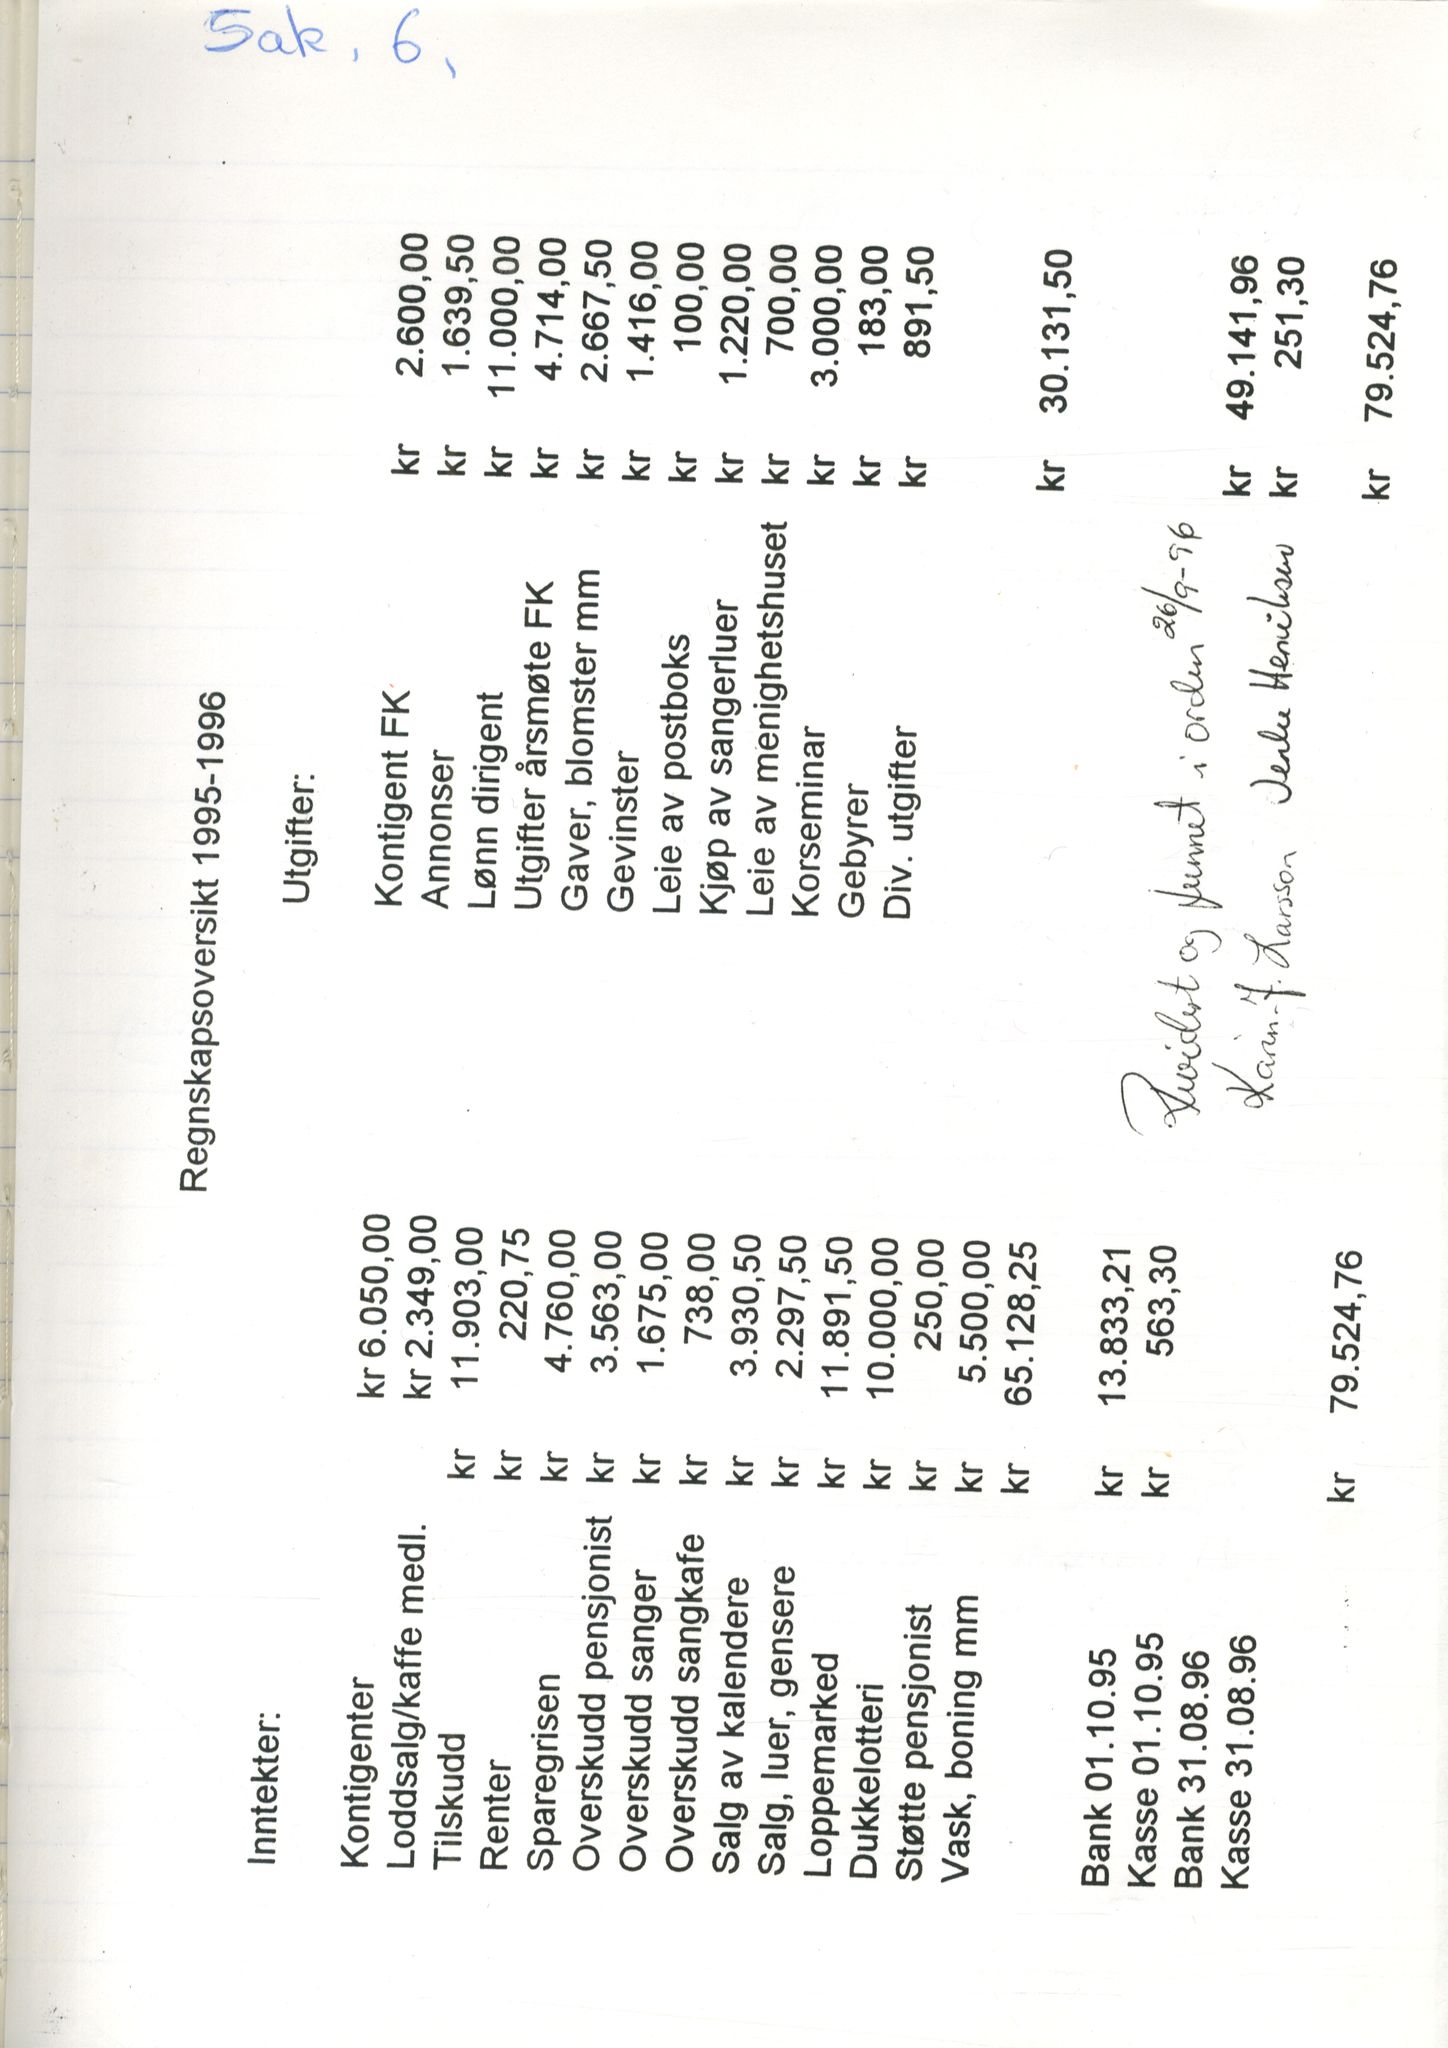 Sak. 6.
Regnskapsoversikt 1995-1996
Inntekter: Utgifter:
Kontigenter kr 6.050,00 Kontigent FK kr 2.600,00
Loddsalg/kaffe medl. kr 2.349,00 Annonser kr 1.639,50
Tilskudd kr 11.903,00 Lønn dirigent kr 11.000,00
Renter kr 220,75 Utgifter årsmøte FK kr 4.714,00
Sparegrisen kr 4.760,00 Gaver, blomster mm kr 2.667,50
Overskudd pensjonist kr 3.563,00 Gevinster kr 1.416,00
Overskudd sanger kr 1.675,00 Leie av postboks kr 100,00
Overskudd sangkafe kr 738,00 Kjøp av sangerluer kr 1.220,00
Salg av kalendere kr 3.930,50 Leie av menighetshuset kr 700,00
Salg, luer, gensere kr 2.297,50 Korseminar kr 3.000,00
Loppemarked kr 11.891,50 Gebyrer kr 183,00
Dukkelotteri kr 10.000,00 Div. utgifter kr 891,50
Støtte pensjonist kr 250,00
Vask, boning mm kr 5.500,00
kr 65.128,25 kr 30.131,50
Bank 01.10.95 kr 13.833,21
Kasse 01.10.95 kr 563,30
Revidert og funnet i orden 26/9-96
Bank 31.08.96 kr 49.141,96
Kasse 31.08.96 kr 251,30
Karin J. Larsson Henriksen
kr 79.524,76 kr 79.524,76